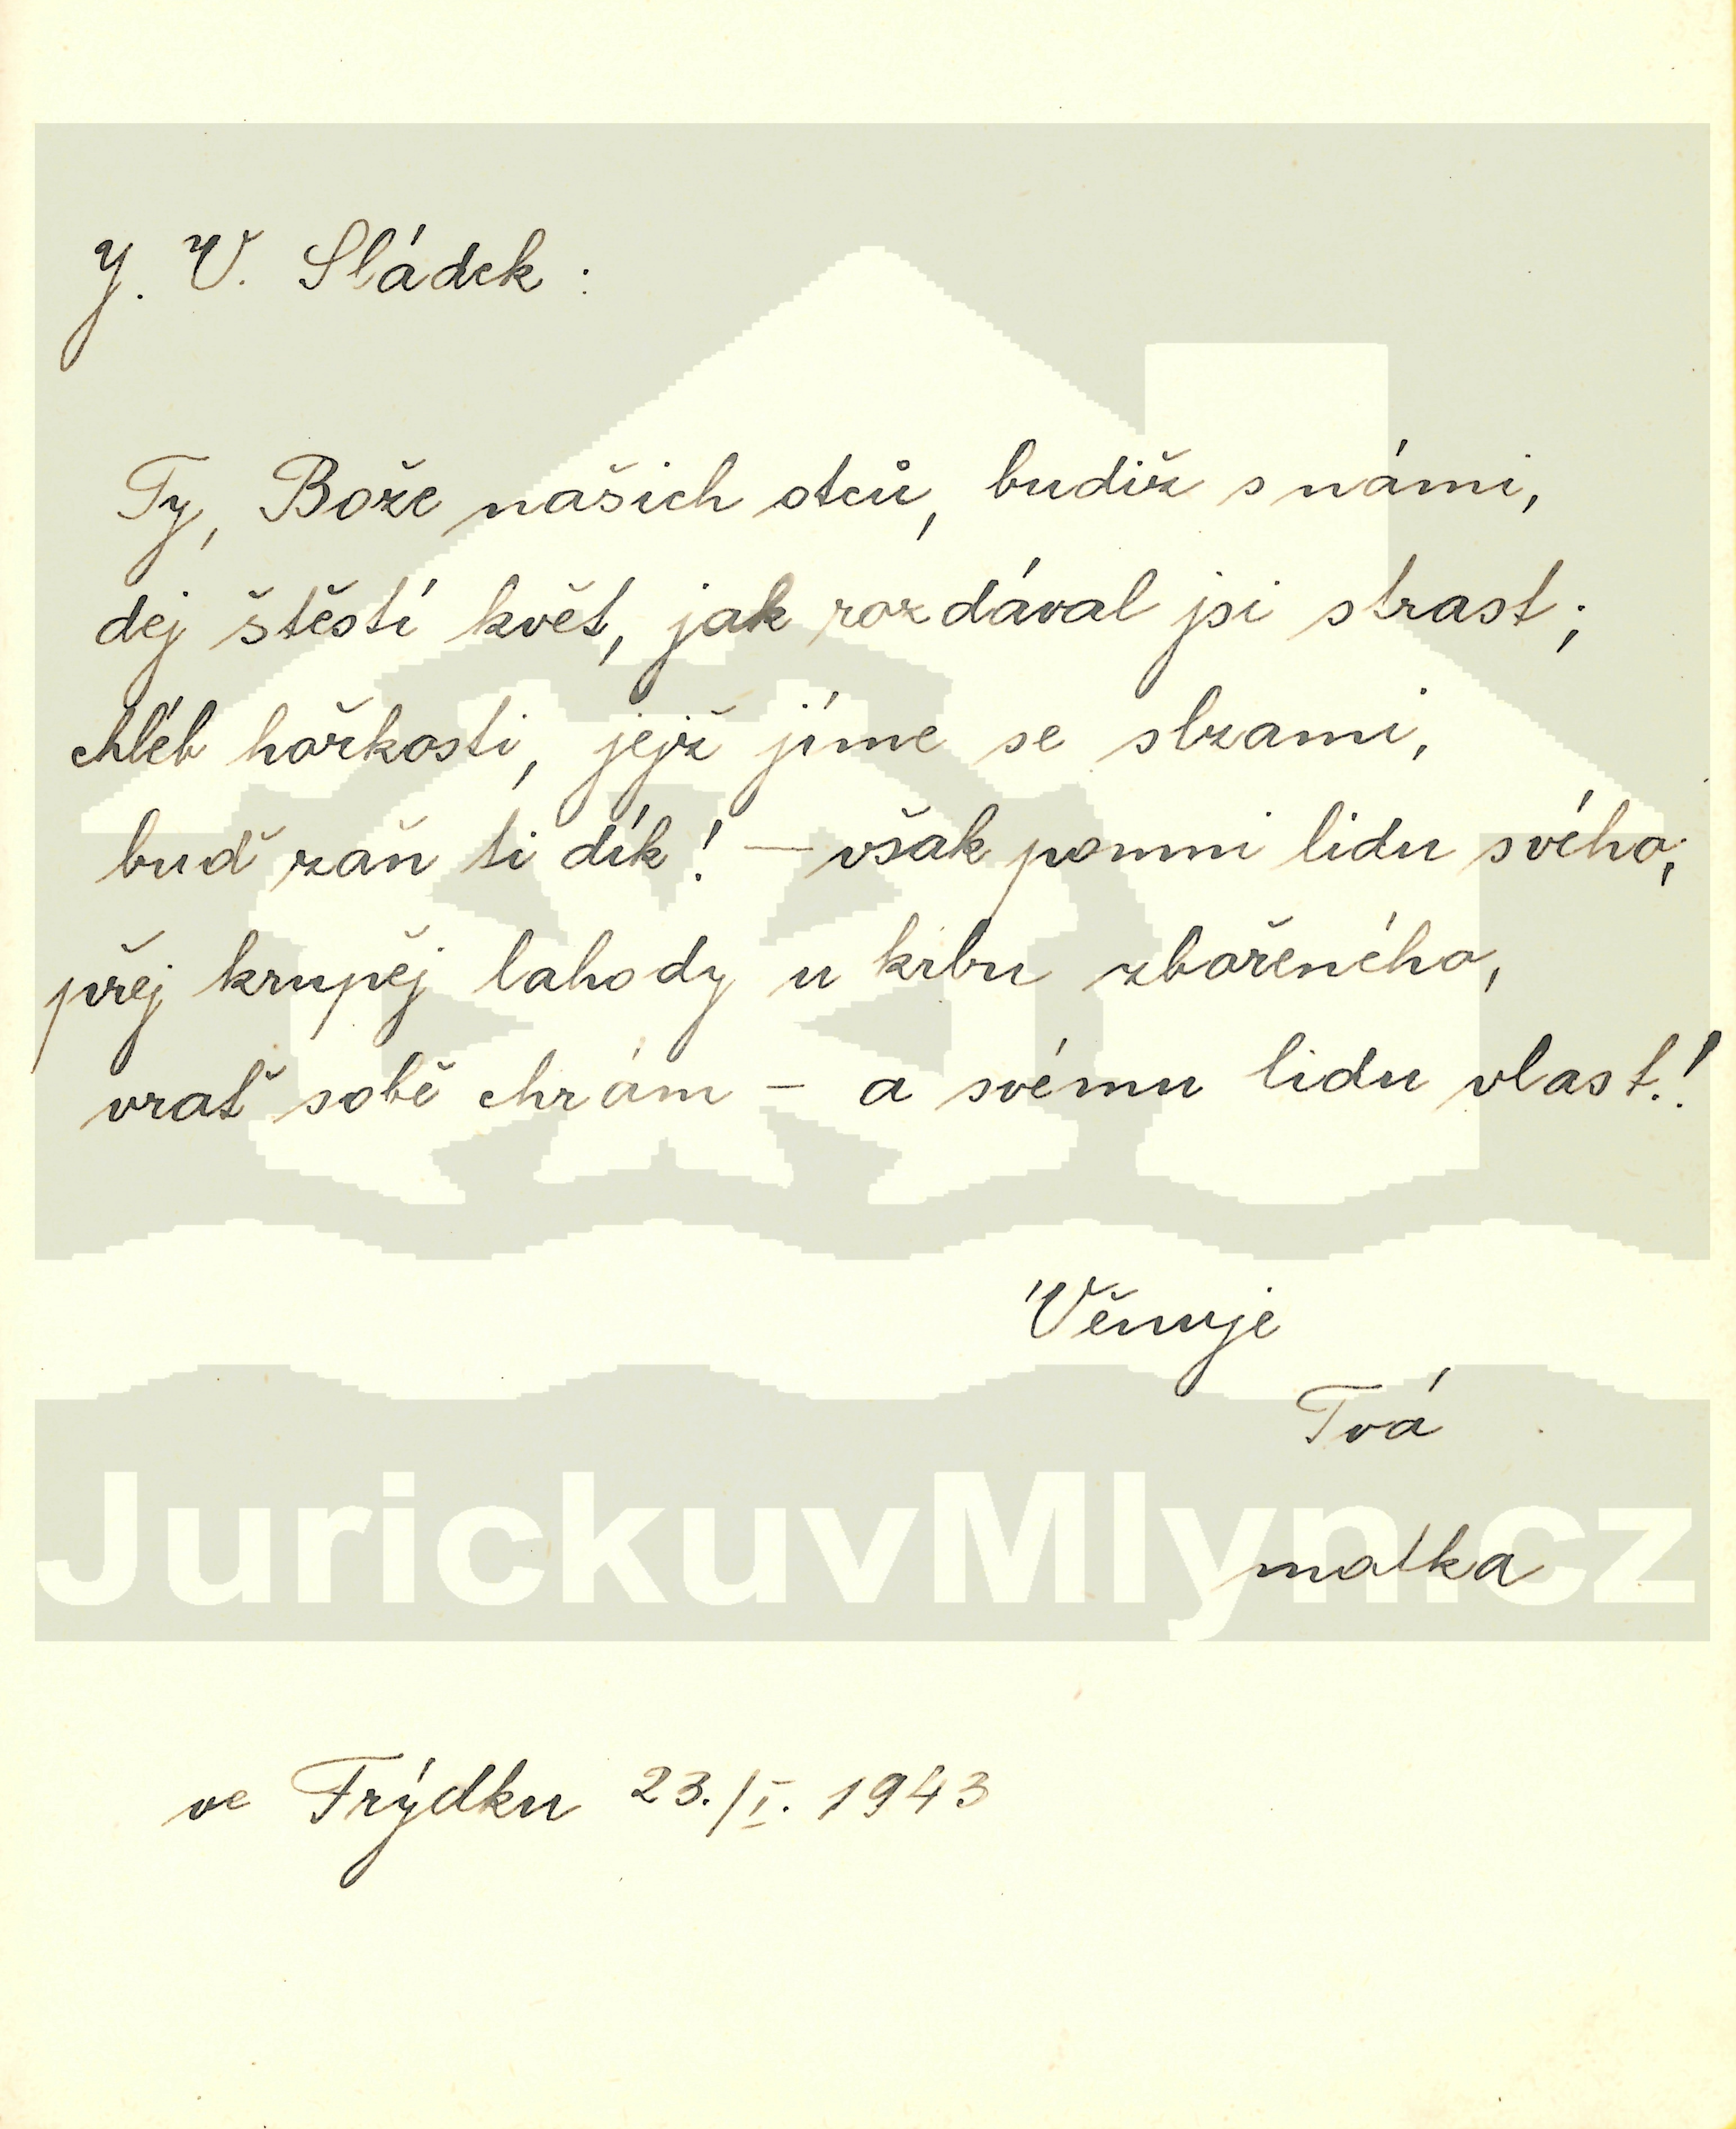 J. V. Sládek:
Ty, Bože našich otců, budiž s námi,
dej štěstí květ, jak rozdával jsi strast;
chléb hořkosti, jejž jíme se slzami,
buď zaň ti dík! — však pomni lidu svého,
přej krupěj lahody u krbu zbořeného,
vrať sobě chrám – a svému lidu vlast!
Věnuje
Tvá
JurickuvMlyn.cz
matka
ve Frýdku 23./I. 1943